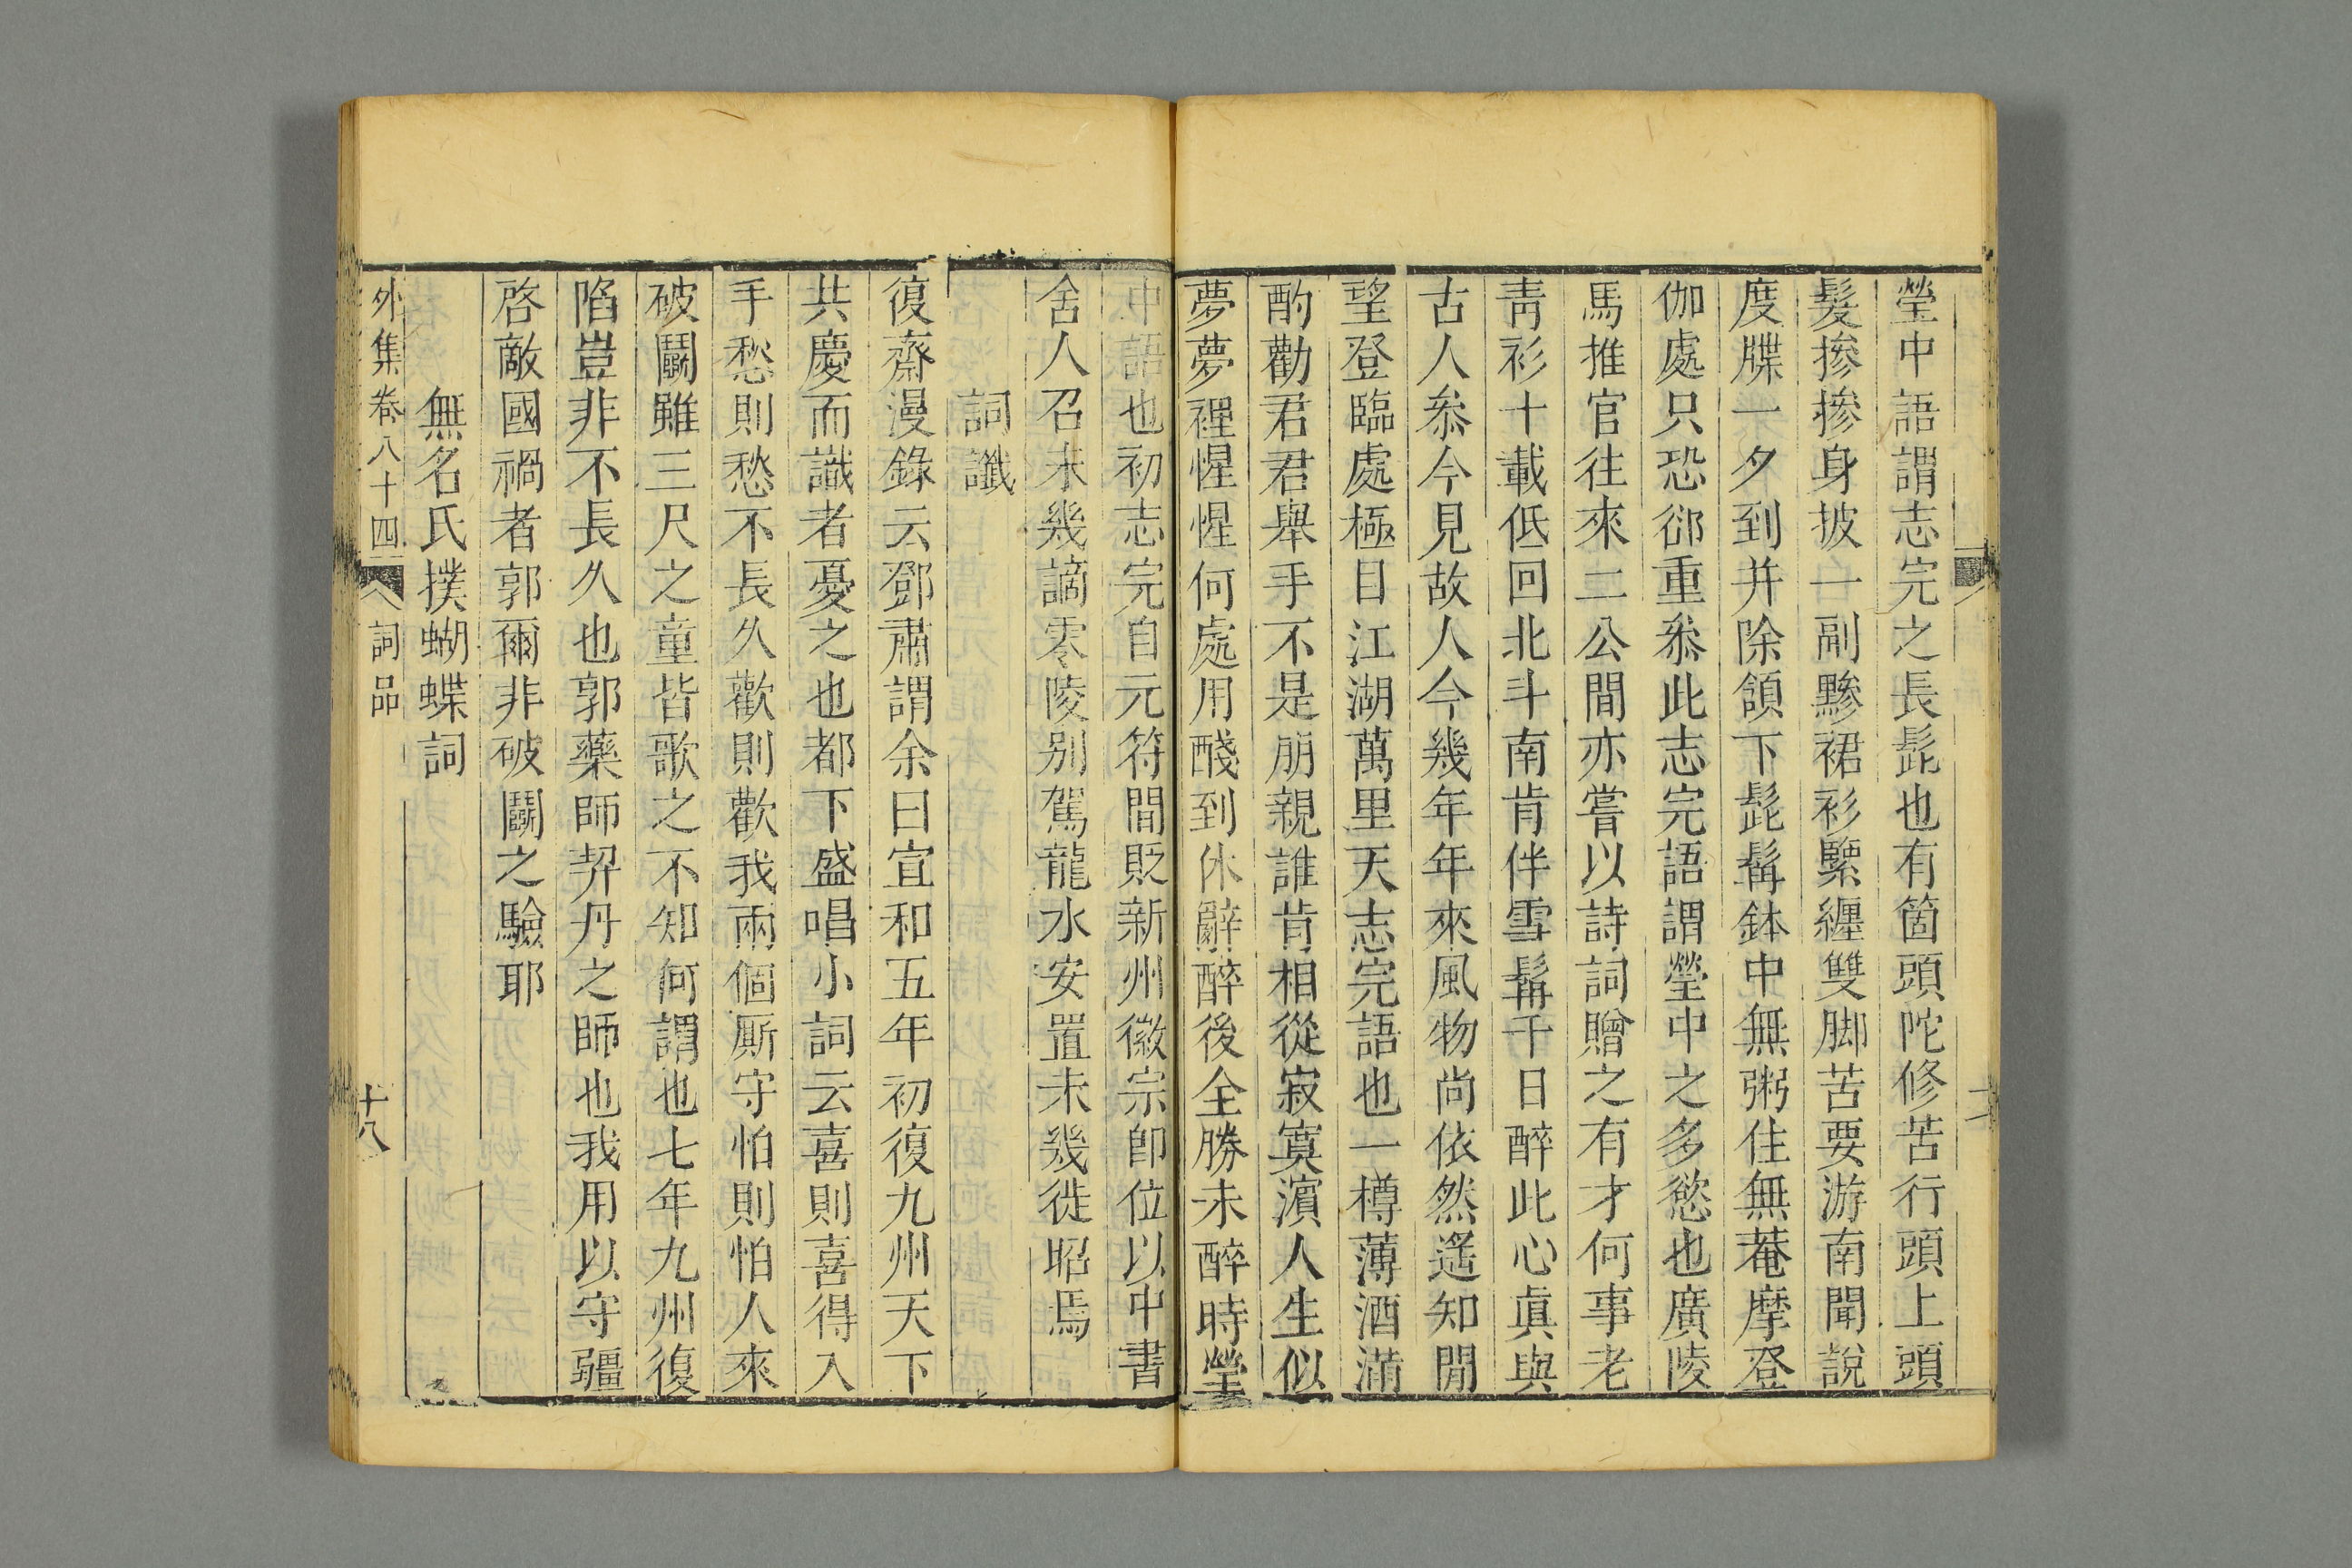 瑩中語謂志完之長髭也有箇頭陀修苦行頭上頭
髮摻摻身披一副黲裙衫緊纏雙脚苦要游南聞說
度牒一夕到并除頷下髭髯鉢中無粥住無菴摩登
伽處只恐卻重叅此志完語謂瑩中之多慾也廣陵
馬推官往來二公間亦嘗以詩詞贈之有才何事老
靑衫十載低回北斗南肯伴雪髯千日醉此心眞與
古人叅今見故人今幾年年來風物尚依然遙知閒
望登臨處極目江湖萬里天志完語也一樽薄酒滿
酌勸君君舉手不是朋親誰肯相從寂寞濱人生似
夢夢裡惺惺何處用醆到休辭醉後全勝未醉時瑩
中語也初志完自元符間貶新州徽宗卽位以中書
舍人召未幾謫零陵別駕龍水安置未幾徙昭焉
詞讖
復齋漫錄云鄧肅謂余曰宣和五年初復九州天下
共慶而識者憂之也都下盛唱小詞云喜則喜得入
手愁則愁不長久歡則歡我兩個厮守怕則怕人來
破鬭雖三尺之童皆歌之不知何謂也七年九州復
陷豈非不長久也郭藥師契丹之師也我用以守疆
啓敵國禍者郭爾非破鬭之驗耶
無名氏撲蝴蝶詞
外集卷八十四 詞品 十八